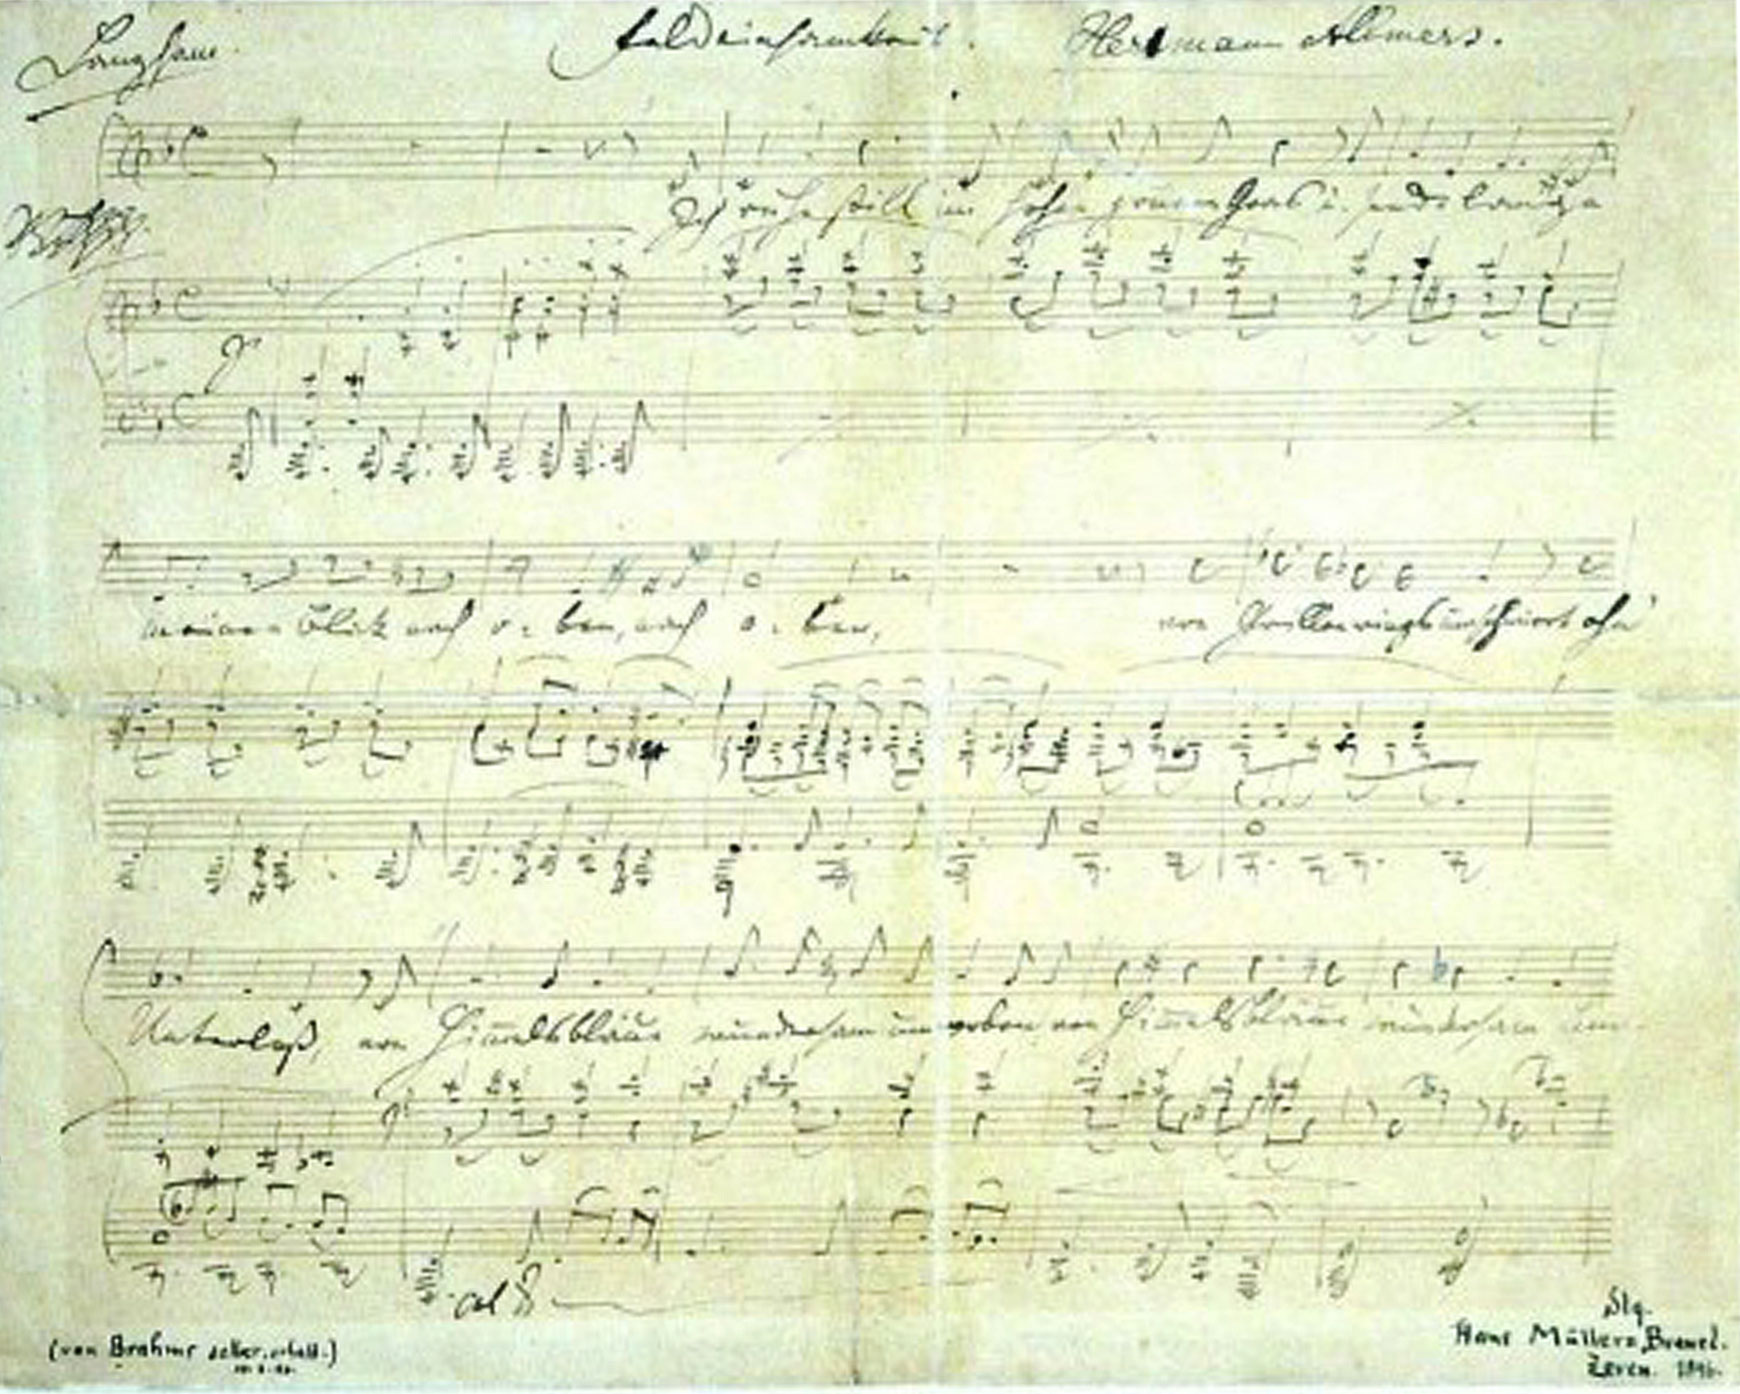 Langsam.
Feldeinsamkeit. Hermann Allmers.
Ich ruhe still im hohen grünen Gras u. sende lange
meinen Blick nach o- ben, nach o- ben,
von Grillen rings umschwirrt ohn'
Unterlaß, von Himmelsbläue wundersam umwoben von Himmelsbläue wundersam um-
(von Brahms selber erhalt.)
Slg.
Hans Müller-Brauel.
Zeven. 1896.